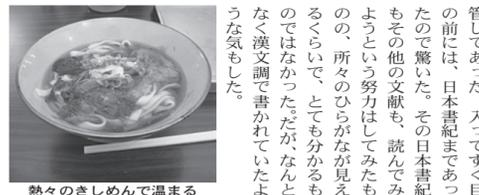 管してあった　入ってすぐ目
の前には、日本書紀まであっ
たので驚いた。その日本書紀
もその他の文献も、読んでみ
ようという努力はしてみたも
のの、所々のひらがなが見え
るくらいで、とても分かるも
のではなかった。だが、なんと
なく漢文調で書かれていたよ
うな気もした。
熱々のきしめんで温まる